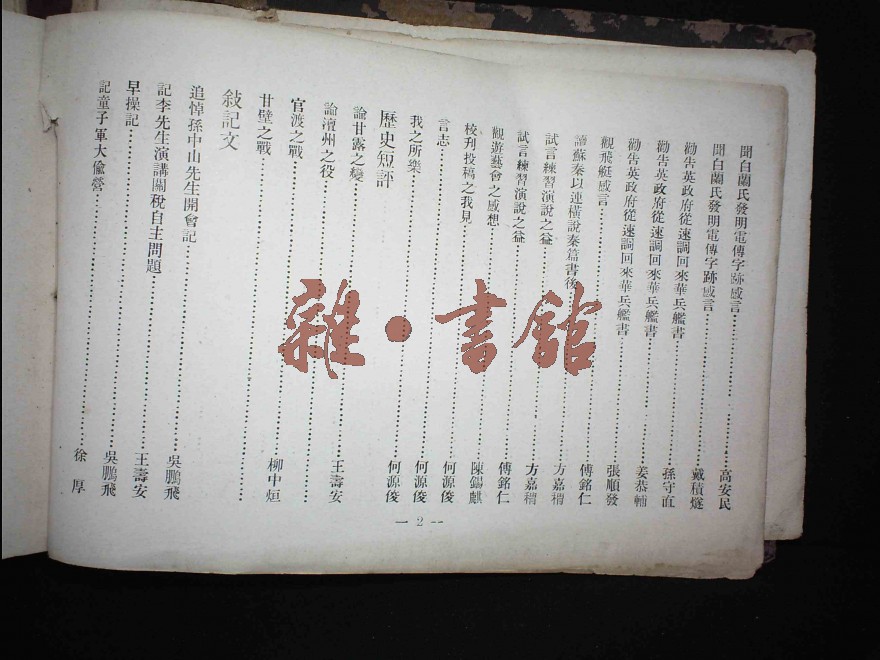 聞白蘭氏發明電傳字跡感言……高安民
聞白蘭氏發明電傳字跡感言……戴積燧
勸告英政府從速調回來華兵艦書……孫守直
勸告英政府從速調回來華兵艦書……姜恭輔
勸告英政府從速調回來華兵艦書……張順發
觀飛艇感言……傅銘仁
讀蘇秦以連橫說秦篇書後……方嘉禤
試言練習演說之益……方嘉禤
試言練習演說之益……傅銘仁
觀遊藝會之感想……陳錫麒
校刋投稿之我見……何源俊
言志……何源俊
我之所樂……何源俊
歷史短評
論甘露之變……王壽安
論澶州之役……
官渡之戰……柳中烜
廿壁之戰……
敍記文
追悼孫中山先生開會記……吳鵬飛
記李先生演講關稅自主問題……王壽安
早操記……吳鵬飛
記童子軍大偸營……徐厚
— 2 —
雜·書館